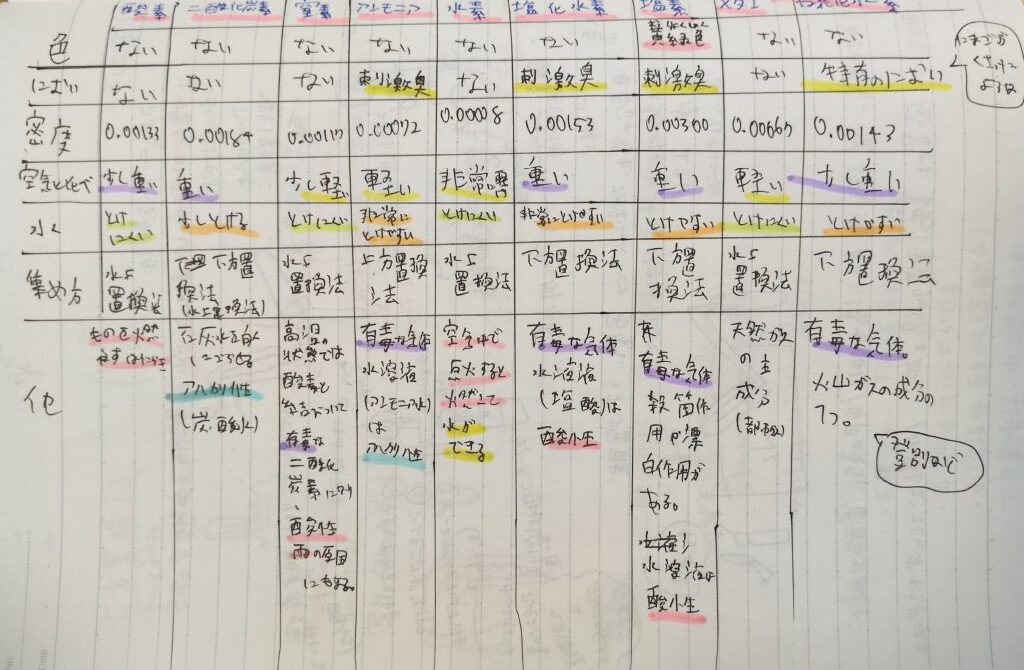 酸素 二酸化炭素 窒素 アンモニア 水素 塩化水素 塩素
黄緑色
色 ない ない ない ない ない ない ない ない
におい ない ない ない 刺激臭 ない 刺激臭 刺激臭 ない 特有のにおい
密度 0.00133 0.00184 0.00117 0.00072 0.00008 0.00153 0.00300 0.00067 0.00143
空気とくらべ 少し重い 重い 少し軽い 軽い 非常に軽い 重い 重い 軽い 少し重い
水に とけにくい 少しとける とけにくい 非常にとけやすい とけにくい 非常にとけやすい とけやすい とけにくい とけやすい
集め方
水上
置換法
下方置
換法
(水上置換法)
水上
置換法
上方置換
法
水上
置換法
下方置換法
下方置
換法
水上
置換法
下方置換法
他
ものを燃
やすはたらき
石灰水を白く
にごらせる
(炭酸水)
高温の
状態では
酸素と
結びついて
有毒な
二酸化
酸性
雨の原因
にもなる。
有毒な気体
水溶液
(アンモニア水)
は
アルカリ性
空気中で
点火すると
燃えて
水が
できる
有毒な気体
水溶液
(塩酸)は
酸性
有毒な気体
殺菌作
用や漂
白作用が
ある。
水溶液は
酸性
天然ガス
の主
成分
(都市ガス)
有毒な気体。
火山ガスの成分の
1つ。
登別など